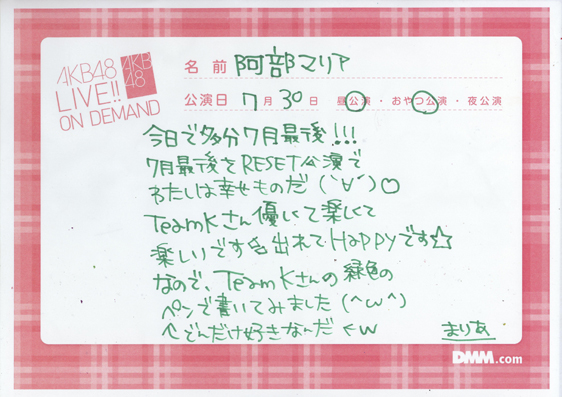 AKB48
LIVE!!
ON DEMAND
AKB
48
名前 阿部マリア
公演日 7月30日 昼公演・おやつ公演・夜公演
今日で多分7月最後!!!
7月最後をRESET公演で
わたしは幸せものだ(`∀´)♡
TeamKさん優しくて楽しくて
楽しいです 出れてHappyです☆
なので、TeamKさんの緑色の
ペンで書いてみました(^ω^)
↑どんだけ好きなんだ←w
まりあ
DMM.com